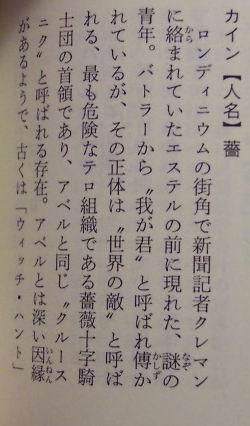 カイン【人名】薔
ロンディニウムの街角で新聞記者クレマン
に絡まれていたエステルの前に現れた、謎の
青年。バトラーから〝我が君〟と呼ばれ傅か
れているが、その正体は〝世界の敵〟と呼ば
れる、最も危険なテロ組織である薔薇十字騎
士団の首領であり、アベルと同じ〝クルース
ニク〟と呼ばれる存在。アベルとは深い因縁
があるようで、古くは「ウィッチ・ハント」